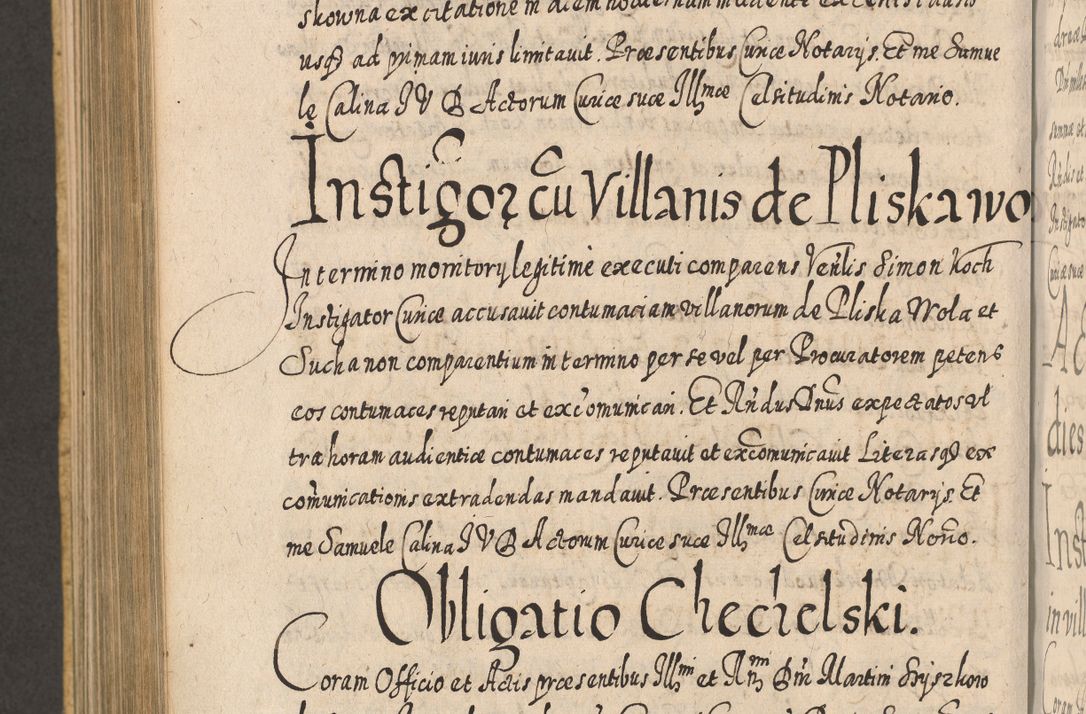 usq ad primam iuris limitavit. Præsentibus Curiæ Notarijs. Et me Samue
le Calina I V D Actorum Curiæ suæ Illmæ Celsitudinis Notario.
Instigor cu Villanis de Pliska wo
In termino monitory legitime executi comparens Venlis Simon Koch
Instigator Curiæ accusavit contumaciam villanorum de Pliska Wola et
Sucha non comparentium in termino per se vel per Procuratorem petens
eos contumaces reputari et excomunicari. Et Rndus Dnus expectatos vl
tra horam audientiæ contumaces reputavit et excomunicavit Literasq ex
comunicationis extradendas mandavit. Præsentibus Curiæ Notarijs. Et
me Samuele Calina I V D Actorum Curiæ suæ Illmæ Celsitudinis Norio.
Obligatio Chechelski.
Coram Officio et Actis præsentibus Illmi et Rmi Dni Martini Szyszkow